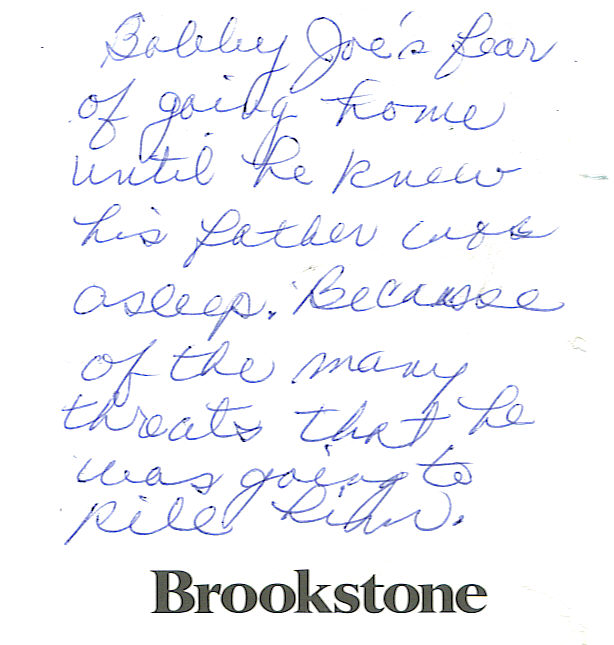 Bobby Joe's fear
of going home
until he knew
his father was
asleep. Because
of the many
threats that he
was going to
kill him.
Brookstone